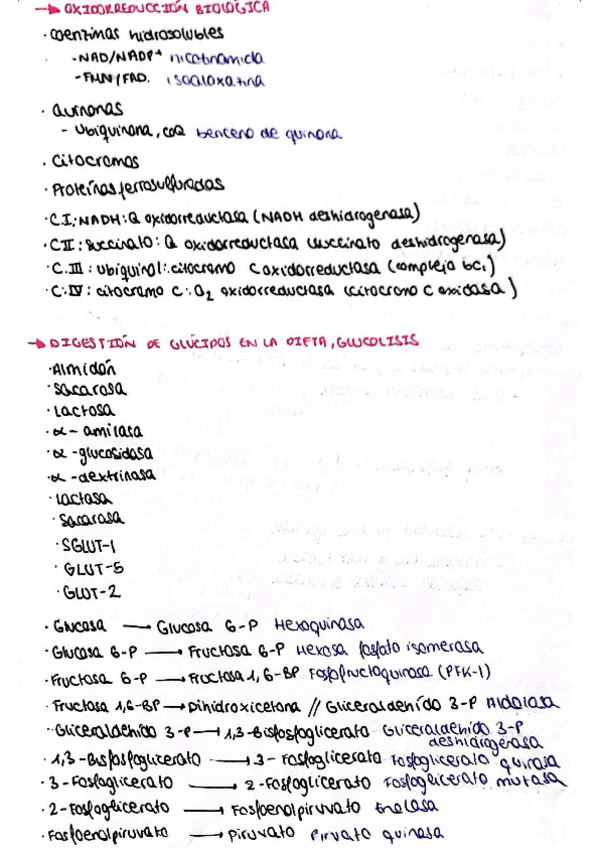 → OXIDORREDUCCIÓN BIOLÓGICA
· Coenzimas hidrosolubles
- NAD/NADP⁺ nicotinamida
- FMN/FAD. isoaloxatina
· Quinonas
- Ubiquinona, CoQ benceno de quinona
· Citocromos
· Proteínas ferrosulfuradas
· C.I: NADH: Q oxidorreductasa (NADH deshidrogenasa)
· CII: Succinato: Q oxidorreductasa (succinato deshidrogenasa)
· C.III: ubiquinol: citocromo C oxidorreductasa (complejo bc₁)
· C.IV: citocromo C: O₂ oxidorreductasa (citocromo C oxidasa)
→ DIGESTIÓN DE GLÚCIDOS EN LA DIETA, GLUCOLISIS
· Almidón
· Sacarosa
· Lactosa
· α- amilasa
· α -glucosidasa
· α -dextrinasa
· lactasa
· Sacarosa
· SGLUT-1
· GLUT-5
· GLUT-2
· Glucosa → Glucosa 6-P Hexoquinasa
· Glucosa 6-P → Fructosa 6-P Hexosa fosfato isomerasa
· Fructosa 6-P → Fructosa 1,6-BP Fosfofructoquinasa (PFK-1)
· Fructosa 1,6-BP → Dihidroxicetona // Gliceraldehído 3-P Aldolasa
· Gliceraldehido 3-P → 1,3-Bisfosfoglicerato Gliceraldehido 3-P deshidrogenasa
· 1,3-Bisfosfoglicerato → 3- Fosfoglicerato Fosfoglicerato quinasa
· 3-Fosfoglicerato → 2-Fosfoglicerato Fosfoglicerato mutasa
· 2-Fosfoglicerato → Fosfoenolpiruvato Enolasa
· Fosfoenolpiruvato → Piruvato Piruvato quinasa